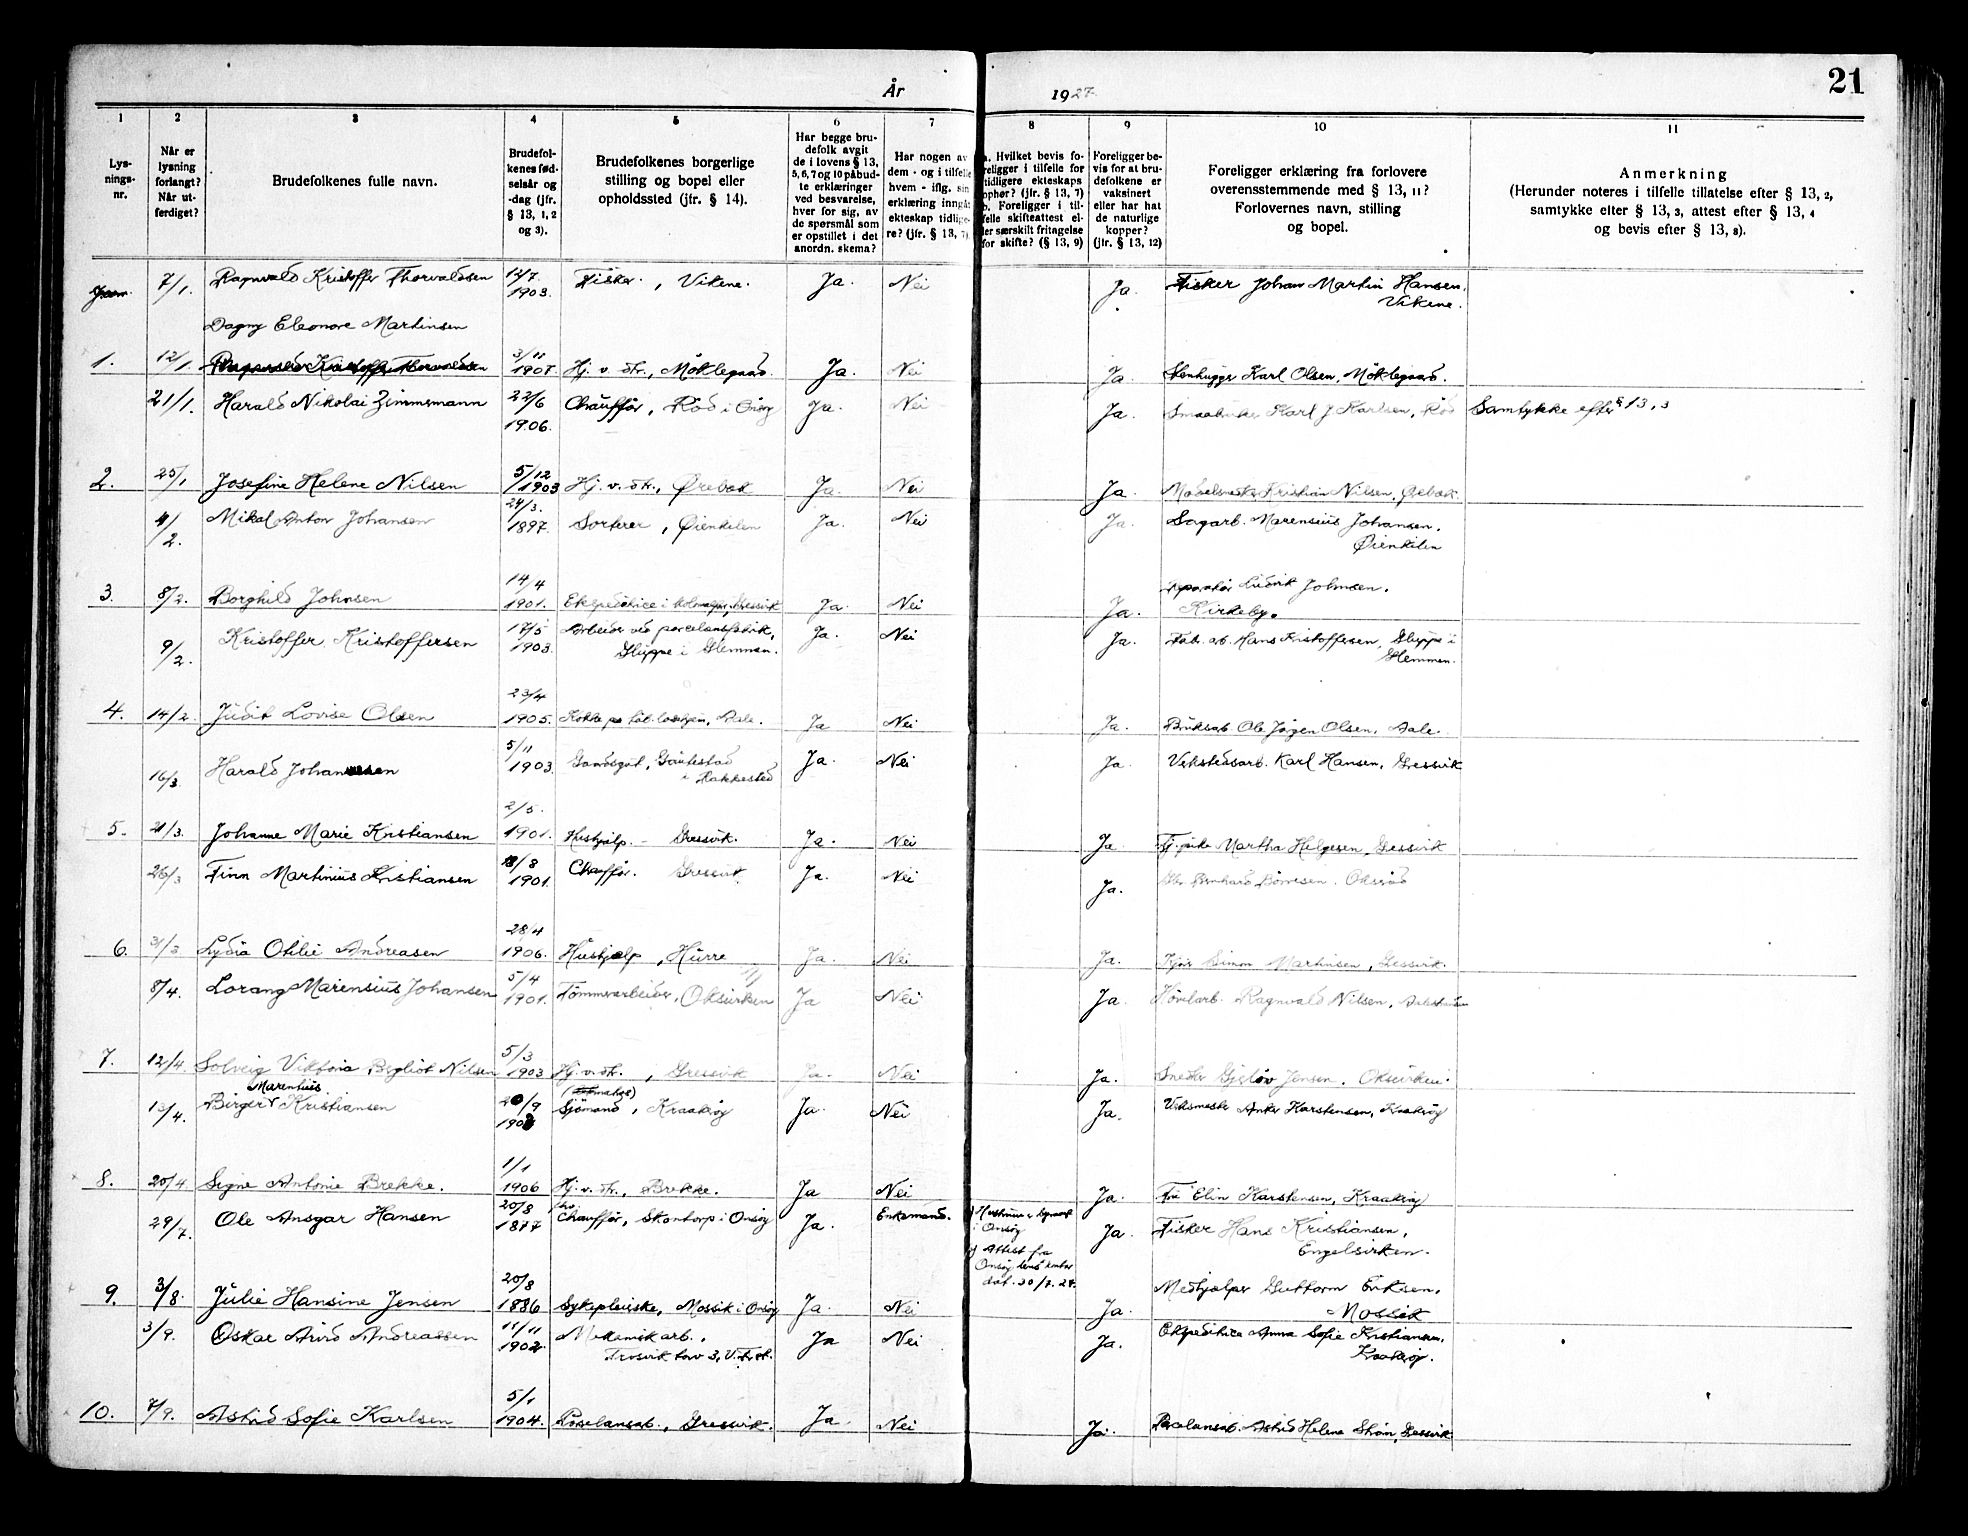 År 1927.
21
1 2 3 4 5 6 7 8 9 10 11
Lys-
nings-
nr.
Når er
lysning
forlangt?
Når ut-
ferdiget?
Brudefolkenes fulle navn.
Brudefol-
kenes fød-
selsår og
-dag (jfr.
§ 13, 1, 2
og 3).
Brudefolkenes borgerlige
stilling og bopel eller
opholdssted (jfr. § 14).
Har begge bru-
defolk avgit
de i lovens § 13,
5, 6, 7 og 10 påbud-
te erklæringer
ved besvarelse,
hver for sig, av
de spørsmål som
er opstillet i det
anordn. skema?
Har nogen av
dem - og i tilfelle
hvem - iflg. sin
erklæring inngåt
ekteskap tidlige-
re? (jfr. § 13, 7)
a. Hvilket bevis fo-
religger i tilfelle for
tidligere ekteskaps
ophør? (jfr. § 13, 7)
b. Foreligger i til-
felle skifteattest el-
ler særskilt fritagelse
for skifte? (§ 13, 9)
Foreligger be-
vis for at bru-
defolkene er
vaksinert
eller har hat
de naturlige
kopper?
(jfr. § 13, 12)
Foreligger erklæring fra forlovere
overensstemmende med § 13, 11?
Forlovernes navn, stilling
og bopel.
Anmerkning
(Herunder noteres i tilfelle tillatelse efter § 13, 2,
samtykke efter § 13, 3, attest efter § 13, 4
og bevis efter § 13, 8).
7/1. Ragnvald Kristoffer Thorvaldsen 14/7 1903. Fisker, Vikene. Ja. Nei Ja. Fisker Johan Martin Hansen, Vikene.
Dagny Eleonore Martinsen
1. 12/1. 3/11 1907. Hj. v. str., Møklegaard. Ja. Nei Ja. Stenhugger Karl Olsen, Møklegaard.
21/1. Harald Nikolai Zimmermann 22/6 1906. Chauffør, Röd i Onsøy Ja. Nei Ja. Smaabruker Karl J Karlsen, Röd Samtykke efter § 13, 3
2. 25/1 Josefine Helene Nilsen 5/12 1903 Hj. v. str., Ørebæk Ja. Nei Ja. Kristian Nilsen, Ørebæk
4/2. Mikal Anton Johansen 24/3. 1897. Sorterer, Øienkilen Ja. Nei Ja. Sagarb. Marensius Johansen, Øienkilen
3. 8/2. Borghild Johnsen 14/4 1901. Ekspeditrice i Gressvik Ja. Nei Ja. Ludvik Johnsen, Kirkeby.
9/2. Kristoffer Kristoffersen 17/5 1903. Arbeider ved porcelansfabrik, Glippe i Glemmen. Ja. Nei Ja. Fab. arb. Hans Kristoffersen, Glippe i Glemmen.
4. 14/2. Judit Lovise Olsen 23/4 1905. Kokke Aale. Ja Nei Ja. Bruksarb Ole Jørgen Olsen, Aale
16/3. Harald Johannesen 5/11 1903. Gaardsgut, Gautestad i Rakkestad Ja. Nei Ja. Verkstedsarb. Karl Hansen, Gressvik
5. 21/3. Johanne Marie Kristiansen 2/5. 1901. Hushjælp. - Gressvik. Ja. Nei Ja. Tj.pike Martha Helgesen, Gressvik
26/3 Finn Martinius Kristiansen /8 1901. Chauffør. Gressvik Ja. Nei Ja. Bernhard Børresen. Oksrød
6. 31/3 Lydia Otilie Andreasen 28/4 1906. Hushjælp, Hurre Ja. Nei Ja. Simon Martinsen, Gressvik.
8/4. Lorang Marensius Johansen 5/4 1901. Tømmerarbeider, Oksviken Ja Nei Ja. Høvlarb. Ragnvald Nilsen,
7. 12/4. Solveig Viktoria Bergliot Nilsen 5/3 1903 Hj. v. str., Gressvik Ja. Nei Ja. Snedker Gjerløv Jensen. Oksviken.
13/4. Birger Marentius Kristiansen 20/9 Sjömand, Kraakerøy Ja. Nei Ja. Verksmester Anker Karstensen, Kraakerøy
8. 20/4. Signe Antonie Brekke. 1/1 1906 Hj. v. str., Brekke. Ja Nei Ja. Fru Elin Karstensen, Kraakerøy
29/7. Ole Ansgar Hansen 20/8 1877 Chauffør, Skontorp i Onsøy Ja. Enkemand. i Onsøy Attest fra Onsøy lensmand dat. 30/7. 27. Ja. Fisker Hans Kristiansen, Engelsviken.
9. 3/8. Julie Hansine Jensen 20/8 1886 Sykepleierske, Mossik i Onsøy Ja. Nei Ja. Medhjelper Guttorm Eriksen, Mossik
3/9. Oskar Arvid Andreassen 11/11 1902 Mekanisk arb., Trosvik torv 3, V. Fr.st. Ja Nei Ja. Ekspeditrice Anna Sofie Kristiansen, Kraakerøy.
10. 7/9. Astrid Sofie Karlsen 5/1 1904. Porselansarb., Gressvik. Ja. Nei Ja. Porcelansarb. Astrid Helene Strøm, Gressvik